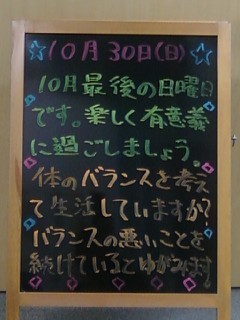 ☆10月30日(日)☆
10月最後の日曜日
です。楽しく有意義
に過ごしましょう。
体のバランスを考え
て生活していますか?
バランスの悪いことを
続けているとゆがみます!